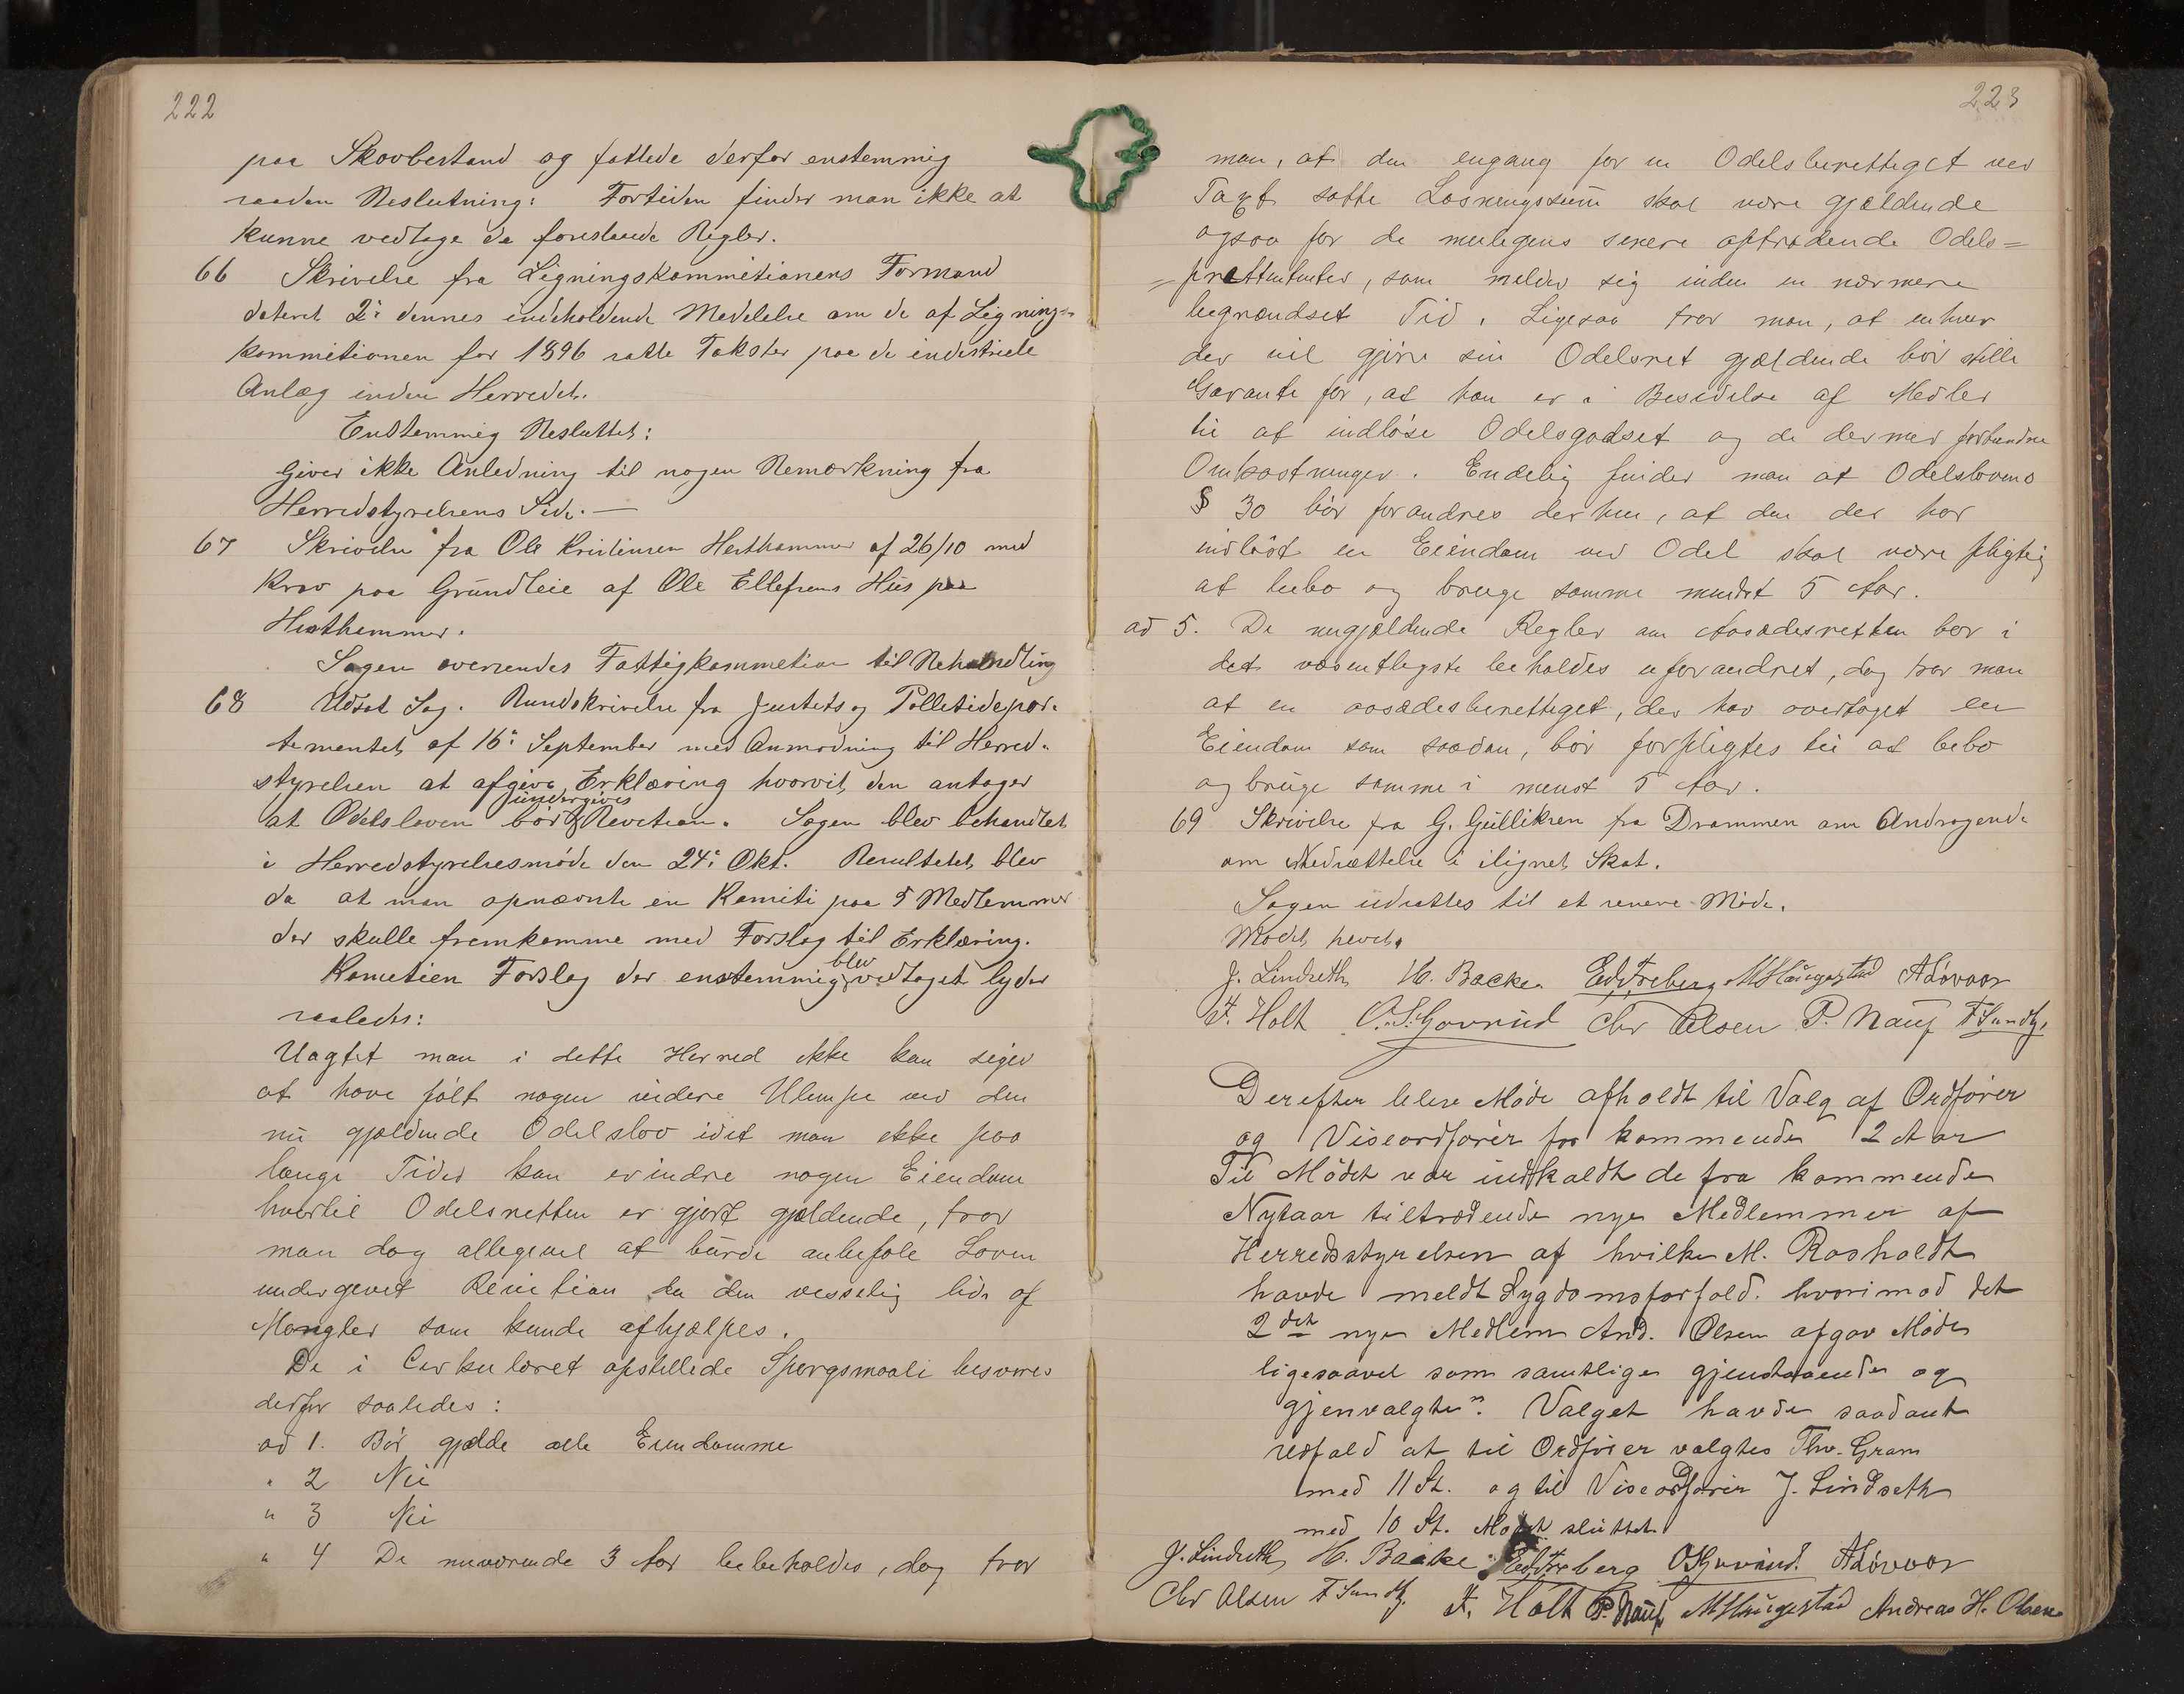 222
paa Skovbestand og fattede derfor enstemmig
saadan Beslutning: Fortiden finder man ikke at
kunne vedtage de foreslaaede Regler.
66 Skrivelse fra Ligningskommitionens Formand
dateret 2: dennes indeholdende Medelelse om de af Ligning-
kommitionen for 1896 satte Takster paa de industriele
Anlæg inden Herredet.
Enstemmig Besluttet:
Giver ikke Anledning til nogen Bemærkning fra
Herredstyrelsens Side. —
67 Skrivelse fra Ole Kristiensen Hesthammer af 26/10 med
Krav paa Grundleie af Ole Ellefsens Hus paa
Hesthammer.
Sagen oversendes Fattigkommetion til Behandling
68 Udsat Sag. Rundskrivelse fra Justets og Polletidepar-
tementet af 16: September med Anmodning til Herred-
styrelsen at afgive Erklæring hvorvit den antager
at Odelsloven bør undergives Revetion. Sagen blev behandlet
i Herredstyrelsesmøde den 24: Okt. Resultatet blev
da at man opnævnte en Komiti paa 5 Medlemmer
der skulle fremkomme med Forslag til Erklæring.
Kometien Forslag der enstemmig blev vedtaget lyder
saaledes:
Uagtet man i dette Herred ikke kan siges
at have følt nogen videre Ulempe ved den
nu gjældende Odelslov idet man ikke paa
lange Tider kan erindre nogen Eiendom
hvortil Odelsretten er gjort gjældende, tror
man dog allegevel at burde anbefale Loven
undergivet Revition da den vesselig lider af
Mangler som kunde afhjælpes.
De i Cirkulæret opstillede Spørgsmaale besvares
derfor saaledes:
ad 1. Bør gjælde alle Eiendomme
" 2 Nei
" 3 Nei
" 4 De nuværende 3 Aar bebeholdes, dog tror
223
man, at den engang for en Odelsberettiget ved
Taxt satte Løsningssum skal være gjældende
ogsaa for de muligens senere optrædende Odels=
=prættententer, som melder sig inden en nærmere
begrændset Tid. Ligesaa tror man, at enhver
der vil gjøre sin Odelsret gjældende bør stille
Garanti for, at han er i Besidelse af Medler
til at indløse Odelsgodset og de dermed forbundne
Omkostninger. Endelig finder man at Odelslovens
§ 30 bør forandres derhen, at den der har
indløst en Eiendom ved Odel skal være pligtig
at bebo og bruge samme mindst 5 Aar.
ad 5. De nugjældende Regler om Aasædesretten bør i
det væsentligste beholdes uforandret, dog tror man
at en aasædesberettiget, der har overtaget en
Eiendom som saadan, bør forpligtes til at bebo
og bruge samme i minst 5 Aar.
69 Skrivelse fra G. Gulliksen fra Drammen om Andragende
om Nedsættelse i ilignet Skat.
Sagen udsattes til et senere Møde.
Mødet hevet.
J. Lindseth H. Backe Edv Freberg M Haugestad A Løvaas
F. Holt O. S. Govrud Chr Olsen P. Nauf F Sundby
Derefter blev Møde afholdt til Valg af Ordfører
og Viseordfører for kommende 2 Aar
Til Mødet var indkaldt de fra kommende
Nytaar tiltrædende nye Medlemmer af
Herredsstyrelsen af hvilke M. Rosholdt
havde meldt Sygdomsforfald. hvorimod det
2det nye Medlem And. Olsen afgav Møde
ligesaavel som samtlige gjenstaaende og
gjenvalgte". Valget havde saadant
udfald at til Ordfører valgtes Thv. Gram
med 11 St. og til Viseordfører J. Lindseth
med 10 St. Mødet sluttet
J. Lindseth H. Backe Edv Freberg O S Govrud. A Løvaas
Chr Olsen F Sundby. F. Holt P. Nauf M Haugestad Andreas H. Olsen